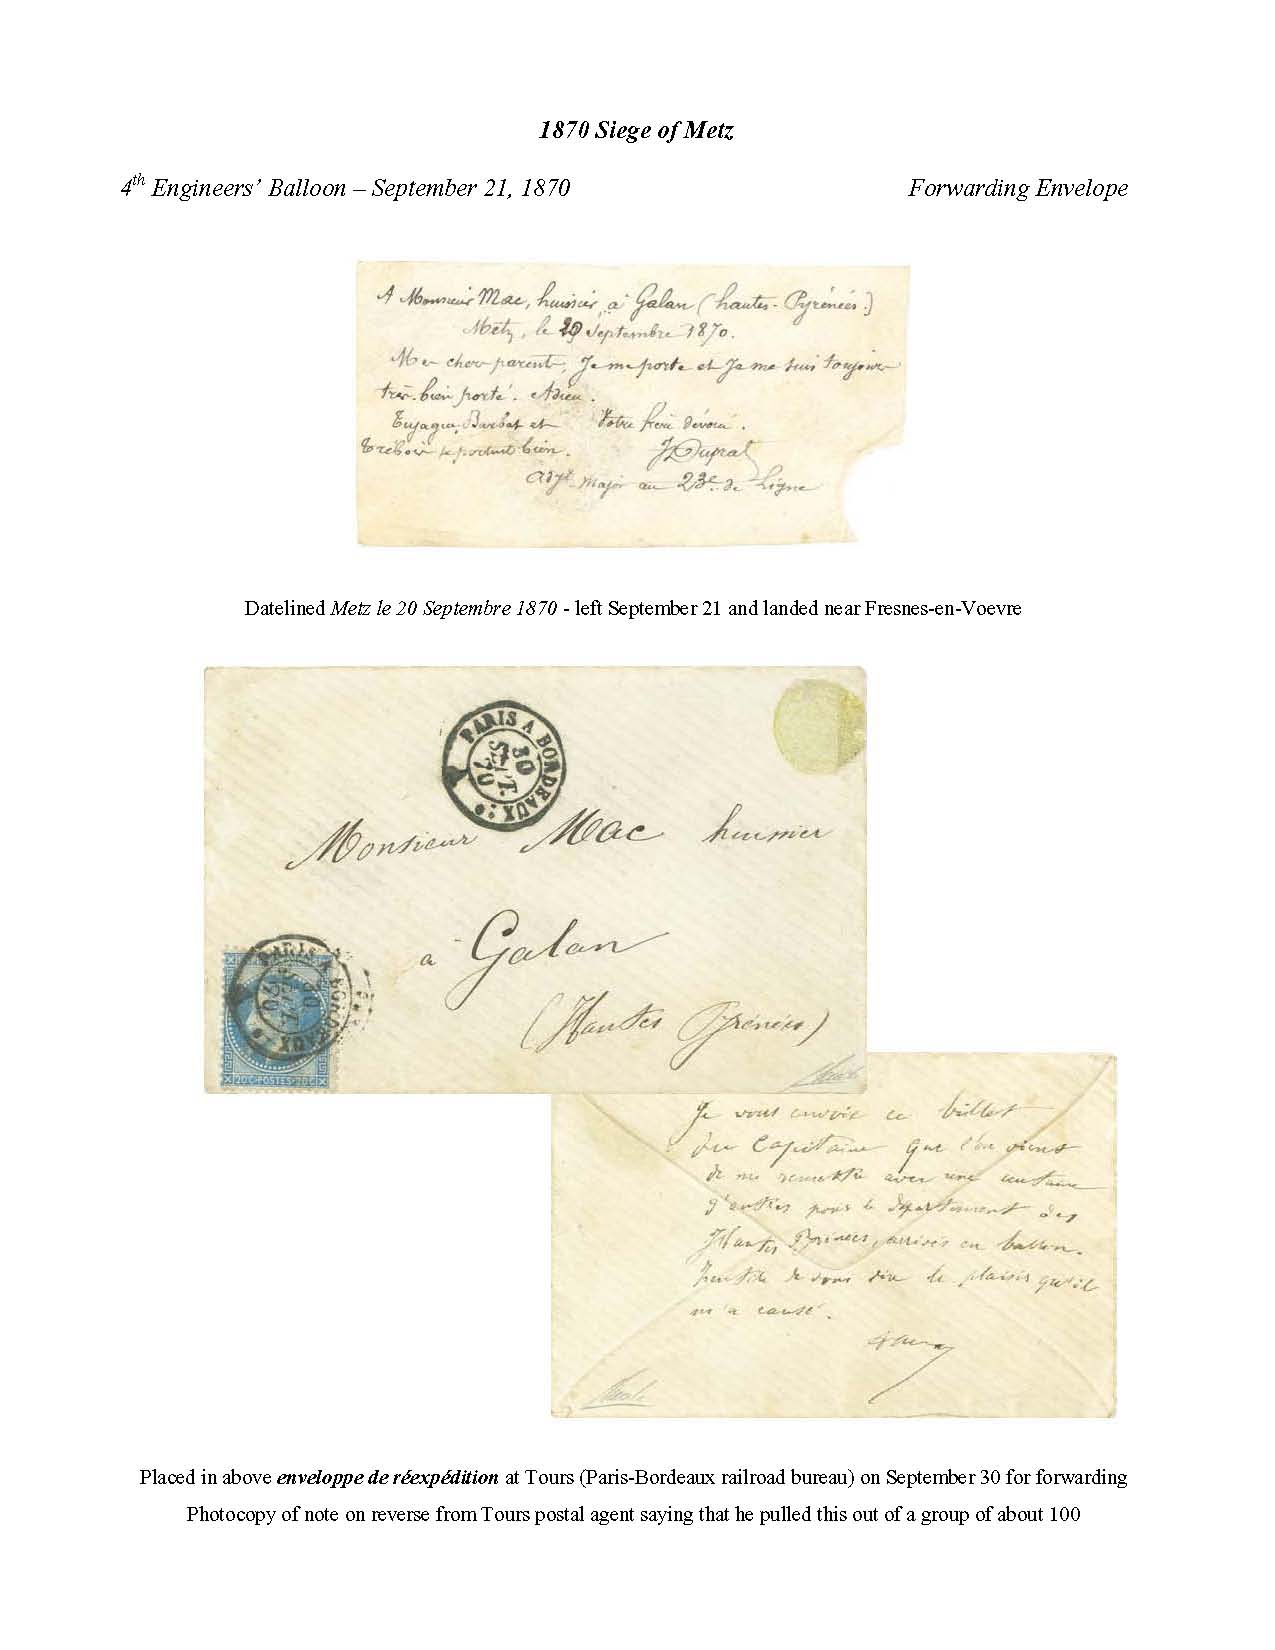 1870 Siege of Metz
4th Engineers' Balloon – September 21, 1870
Forwarding Envelope
A Monsieur Mac, huissier, à Galan (hautes-Pyrénées.)
Metz, le 20 Septembre 1870.
Mes cher parent, Je me porte et Je me suis toujours
très-bien porté. Adieu.
Barbat et Votre frère dévoué.
se portent bien. JDuprat
adjt major au 23e de Ligne
Datelined Metz le 20 Septembre 1870 - left September 21 and landed near Fresnes-en-Voevre
PARIS A BORDEAUX
30
SEPT.
70
Monsieur Mac huissier
à Galan
(Hautes Pyrénées)
PARIS A BORDEAUX
30
SEPT.
70
20 C POSTES 20 C
Je vous envoie ce billet
du Capitaine que l'on vient
de me remettre avec une centaine
d'autres pour le département des
Hautes Pyrénées, arrivés en ballon.
Inutile de vous dire le plaisir qu'il
m'a causé.
Placed in above enveloppe de réexpédition at Tours (Paris-Bordeaux railroad bureau) on September 30 for forwarding
Photocopy of note on reverse from Tours postal agent saying that he pulled this out of a group of about 100